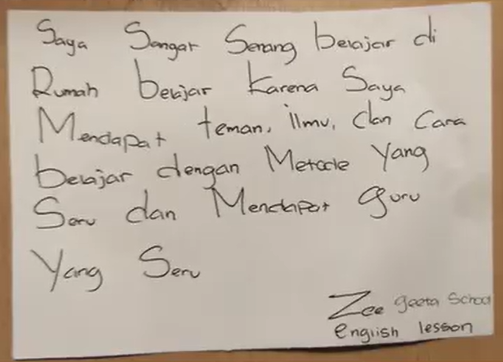 Saya Sangat Senang belajar di
Rumah belajar Karena Saya
Mendapat teman, ilmu, dan Cara
belajar dengan Metode Yang
Seru dan Mendapat guru
Yang Seru
Zee geeta School
english lesson